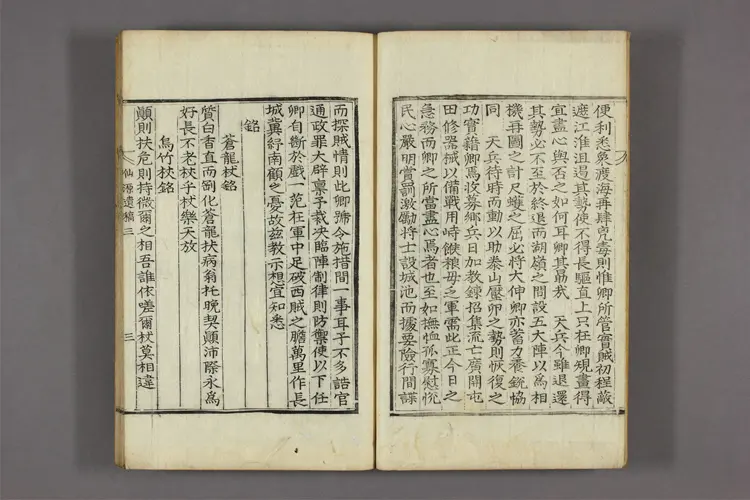 便利悉衆渡海再肆兇毒則惟卿所管實賊初程敵
遮江淮沮遏其勢使不得長驅直上只在卿規畫得
宜盡心與否之如何耳卿其勗㢤 天兵今雖退還
其勢必不至於終退而湖嶺之間設五大陣以爲相
機再圖之計尺蠖之屈必將大伸卿亦蓄力養銳協
同 天兵待時而動以助泰山壓卵之勢則恢復之
功實籍卿爲收募鄉兵日加教鍊招集流亡廣開屯
田修器械以備戰用峙餱粮毋乏軍需此正今日之
急務而卿之所當盡心焉者也至如撫恤孤㷀慰悅
民心嚴明賞罰激勵將士設城池而據要險行間諜
而探賊情則此卿號令施措間一事耳子不多誥官
通政罪大辟稟子裁决臨陣制律則防禦使以下任
卿自斷於戲一范在軍中足破西賊之膽萬里作長
城冀紓南顧之憂故玆教示想宜知悉
銘
蒼龍杖銘
質白香直而劉化蒼龍扶病翁托晚契顚沛際永爲
好長不老挾乎杖樂天放
烏竹杖銘
顚則扶危則持微爾之相吾誰依嗟爾杖莫相違
仙源遺稿 三
三